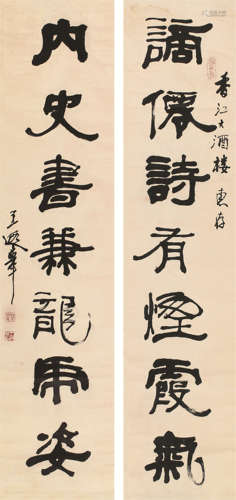 香江大酒樓 惠存
謫僊詩有煙霞氣
内史書兼龍虎姿
王遐舉